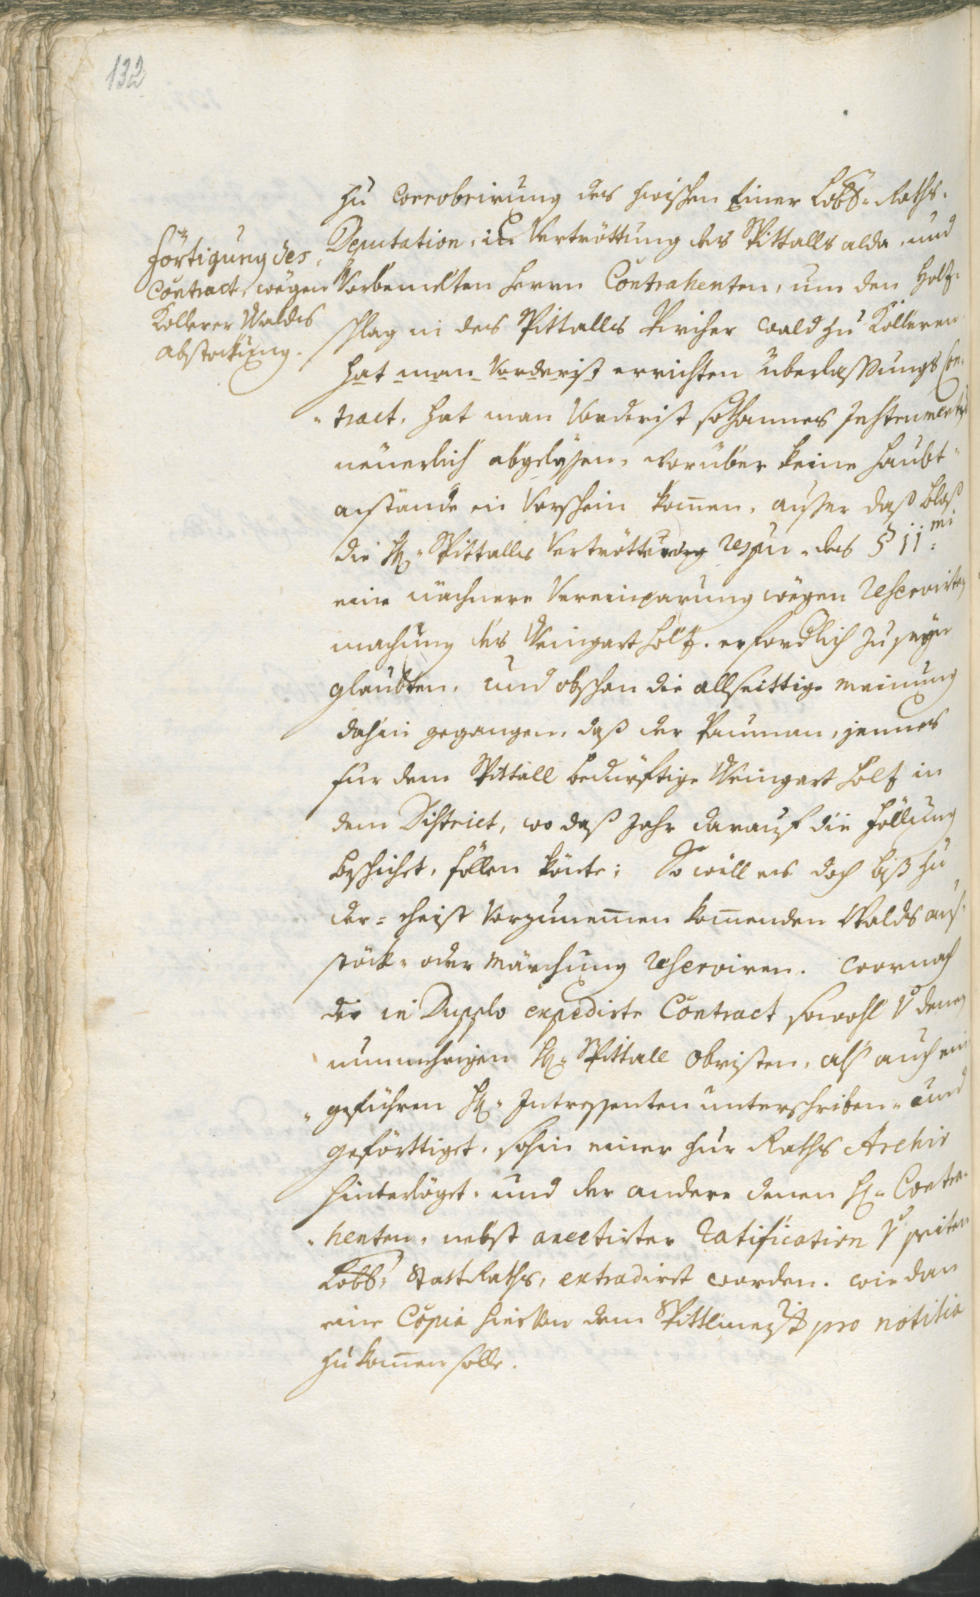 132
Förtigung des
Contract, wegen
Kollerer Waldts
abstockung.
Zu corrobrirung des zwischen Einer Lobb: Raths-
Deputation, in Vertröttung des Spittalls alda, und
Vorbemelten Herrn Contrahenten, um den Holz-
schlag in des Spittalls Kircher Wald zu Kolleren
hat man Vorderist errichten überlassungs Con-
-tract, hat man Vorderist sothannes Instrument
neuerlich abgelesen, worüber keine Haubt-
anstände in Vorschein kommen, ausser daß blos
die H: Spittalls Vertröttung des § 11:mi
eine nächnere Vereinparung wegen Reservirt
machung des Weingart holz, erfordlich zu seyn
glaubten, und obschon die allseittige meinung
dahin gegangen, daß der Pauman, jennes
für dem Spittall bedürftige Weingart holz in
dem District, wo daß Jahr darauf die Föllung
beschicht, föllen könte; So will es doch biß zu
der- heist Vorzunemen kommenden Walds aus-
stöck- oder märchung reserviren. wornach
die in Duplo expedirte Contract sowohl v denen
nunmehrigen H: Spittall obristen, als auch ein
-geführen H: Intressenten unterschriben- und
geförttiget, sohin einer zur Raths Archiv
hinterlöget, und der andere denen H: Contra-
-henten, nebst anectirter ratification v seiten
Lobb: StattRaths, extradirt worden. wie dan
eine Copia hievon dem Spittlmeister pro notitia
zu kommen solle.